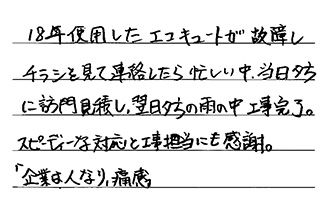 18年使用したエコキュートが故障し
チラシを見て連絡したら忙しい中、当日夕方
に訪問見積し、翌日夕方の雨の中工事完了。
スピーディーな対応と工事担当にも感謝。
「企業は人なり」痛感